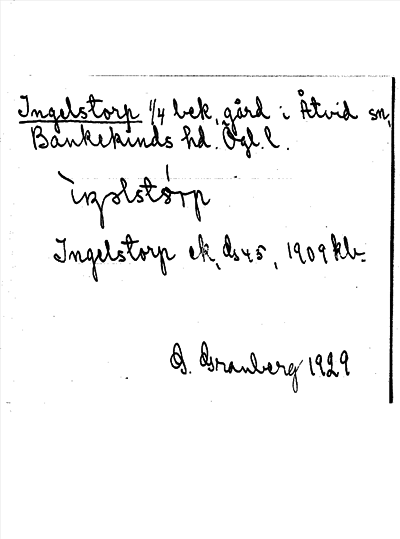 Ingelstorp 1/4 bek. gård i Åtvid sn,
Bankekinds hd. Ögl. l.
Ingelstorp ek, ds 45, 1909 kb.
G. Granberg 1929